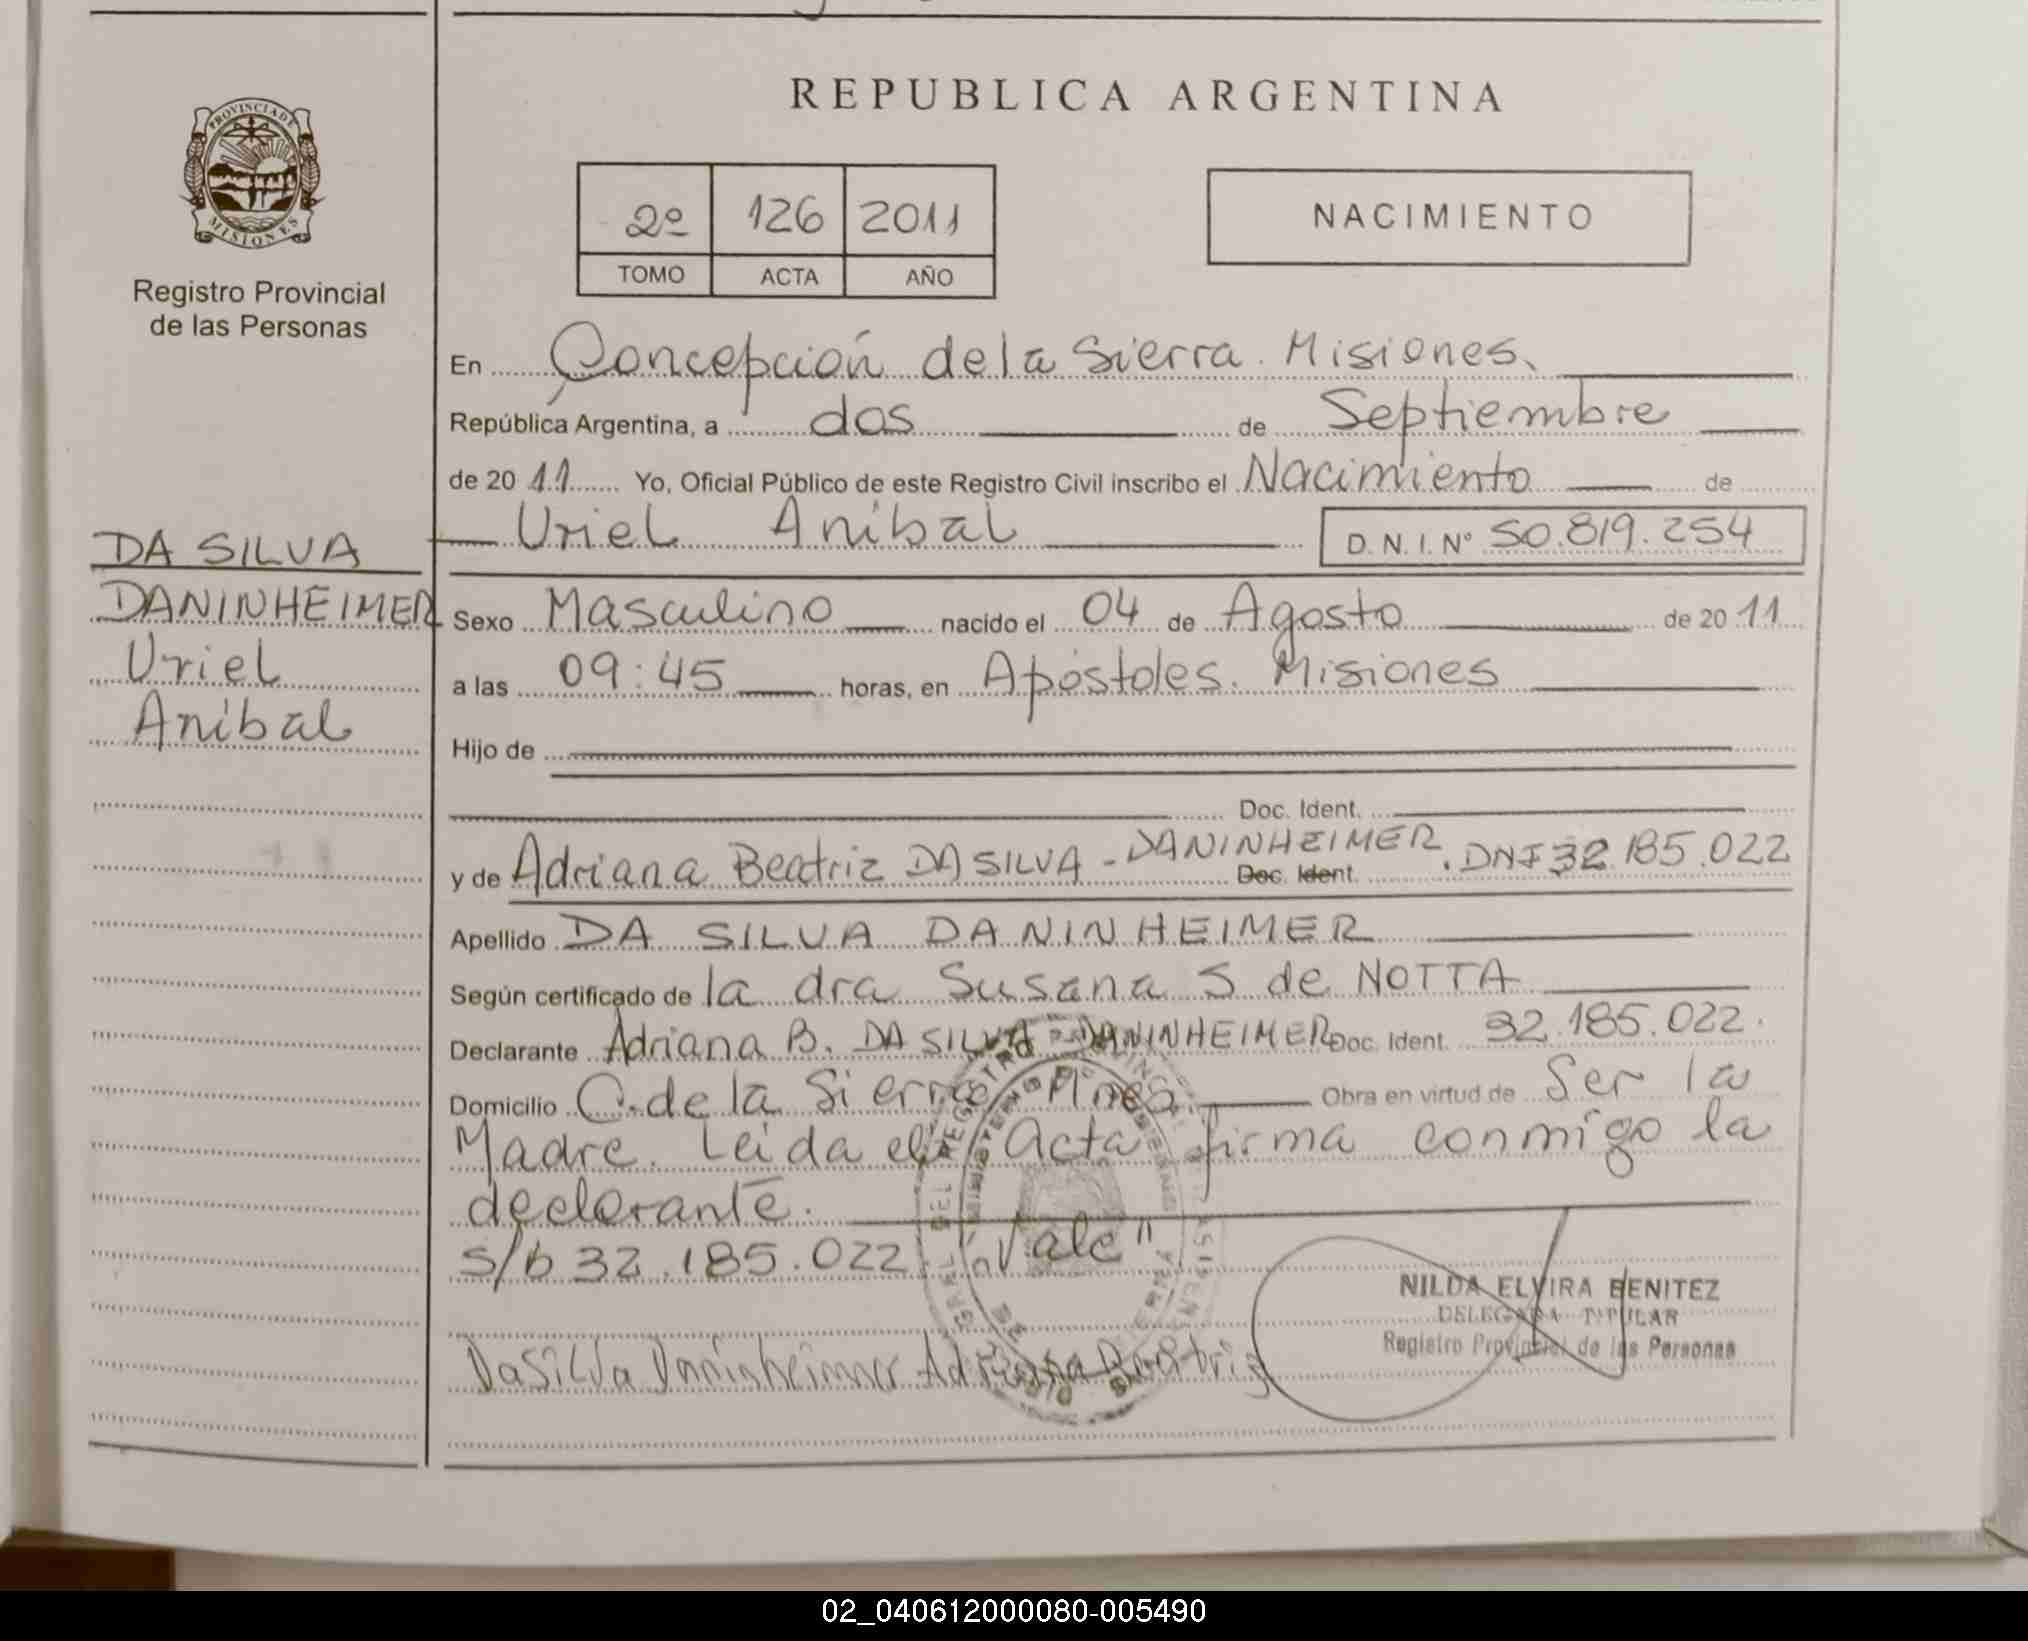 REPUBLICA ARGENTINA
PROVINCIA DE MISIONES
Registro Provincial
de las Personas
2º 126 2011
TOMO ACTA AÑO
NACIMIENTO
En Concepción de la Sierra. Misiones.
República Argentina, a dos de Septiembre
de 2011 Yo, Oficial Público de este Registro Civil inscribo el Nacimiento de
Uriel Anibal D.N.I. Nº 50.819.254
DA SILVA
DANINHEIMER
Uriel
Anibal
Sexo Masculino nacido el 04 de Agosto de 2011
a las 09:45 horas, en Apóstoles. Misiones
Hijo de
Doc. Ident.
y de Adriana Beatriz DA SILVA - DANINHEIMER Doc. Ident. . DNI 32.185.022
Apellido DA SILVA DANINHEIMER
Según certificado de la dra Susana S de NOTTA
Declarante Adriana B. DA SILVA DANINHEIMER Doc. Ident. 32.185.022.
Domicilio C. de la Sierra Mnes. Obra en virtud de Ser la
Madre. Leida el Acta firma conmigo la
declarante.
s/b 32.185.022 "Vale"
NILDA ELVIRA BENITEZ
DELEGADA TITULAR
Registro Provincial de las Personas
DaSilva Daninheimer Adriana Beatriz
02_040612000080-005490